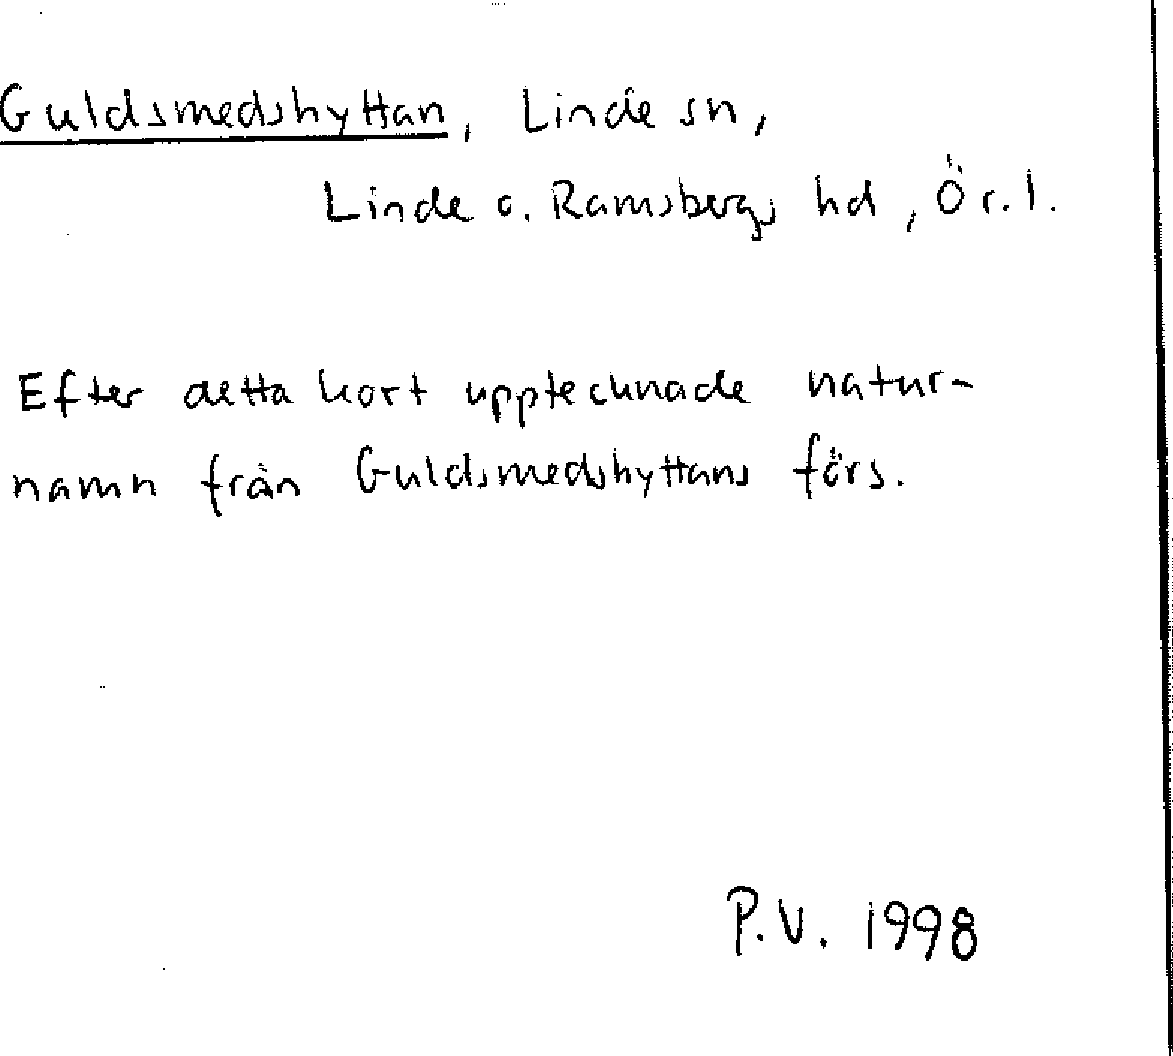 Guldsmedshyttan, Linde sn,
Linde o. Ramsbergs hd, Ör. l.
Efter detta kort upptecknade natur-
namn från Guldsmedshyttans förs.
P.V. 1998